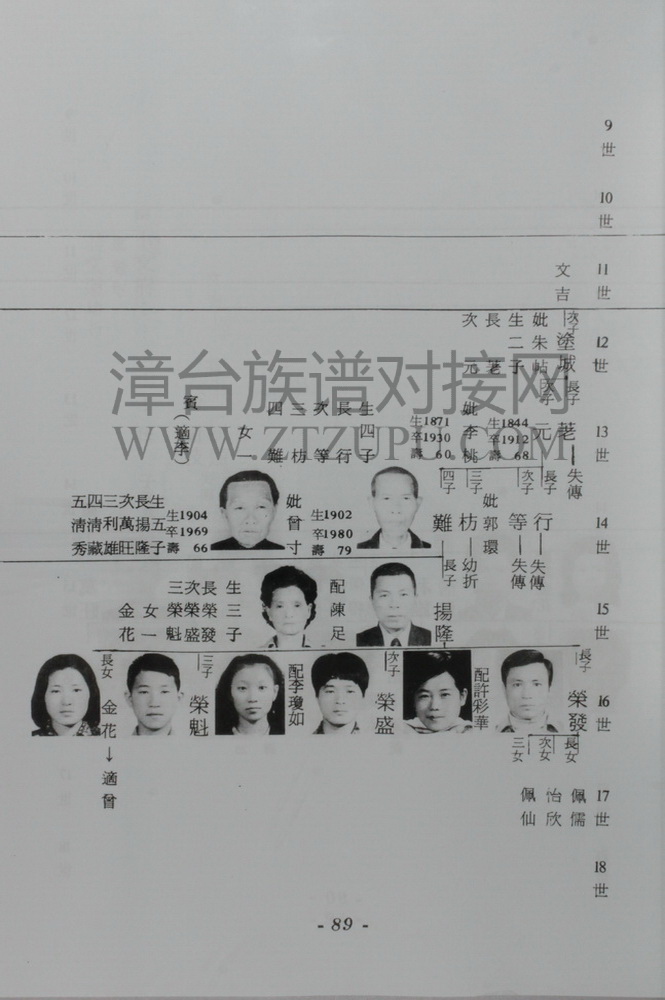 9世
10世
11世
文吉
12世
次子
塗城
妣朱帖
生二子
長荖
次元
漳台族谱对接网
WWW.ZTZUPU.COM
13世
長子
荖—失傳
次子
元
生1844
卒1912
壽68
妣李桃
生1871
卒1930
壽60
生四子
長行
次等
三枋
四難
女一
賓(適李)
14世
長子
行—失傳
次子
等—失傳
三子
枋—幼折
妣郭環
四子
難
生1902
卒1980
壽79
妣曾寸
生1904
卒1969
壽66
生五子
長揚隆
次萬旺
三利雄
四清藏
五清秀
15世
長子
揚隆
配陳足
生三子
長榮發
次榮盛
三榮魁
女一
金花
16世
長子
榮發
配許彩華
次子
榮盛
配李瓊如
三子
榮魁
長女
金花→適曾
17世
長女
佩儒
次女
怡欣
三女
佩仙
18世
- 89 -